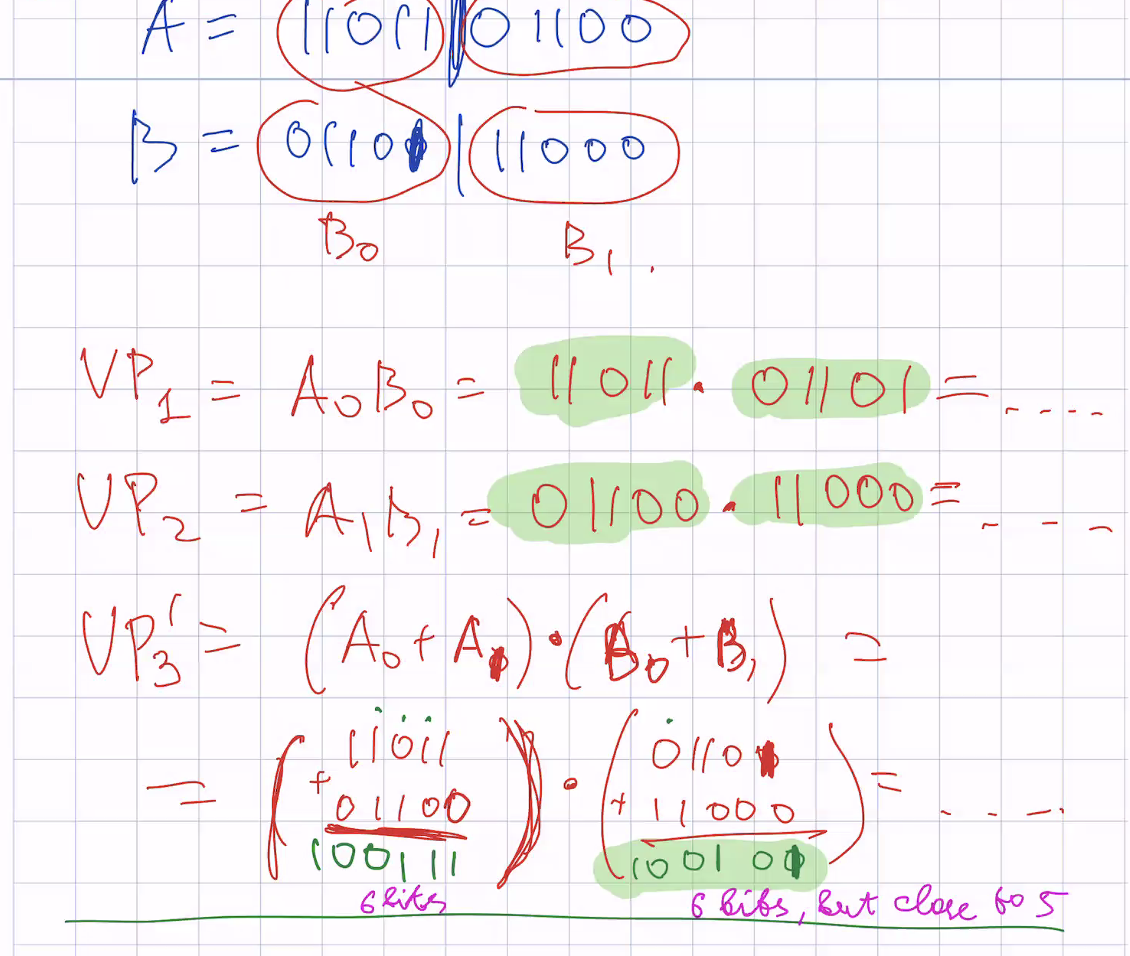 A = 11011 | 01100
B = 01101 | 11000
B₀ B₁.
VP₁ = A₀B₀ = 11011 · 01101 = ....
VP₂ = A₁B₁ = 01100 · 11000 = ...
VP₃' = (A₀ + A₁) · (B₀ + B₁) =
= ( 11011 ) · ( 01101 = ....
+ 01100 + 11000 )
100111 100101
6 bits 6 bits, but close to 5